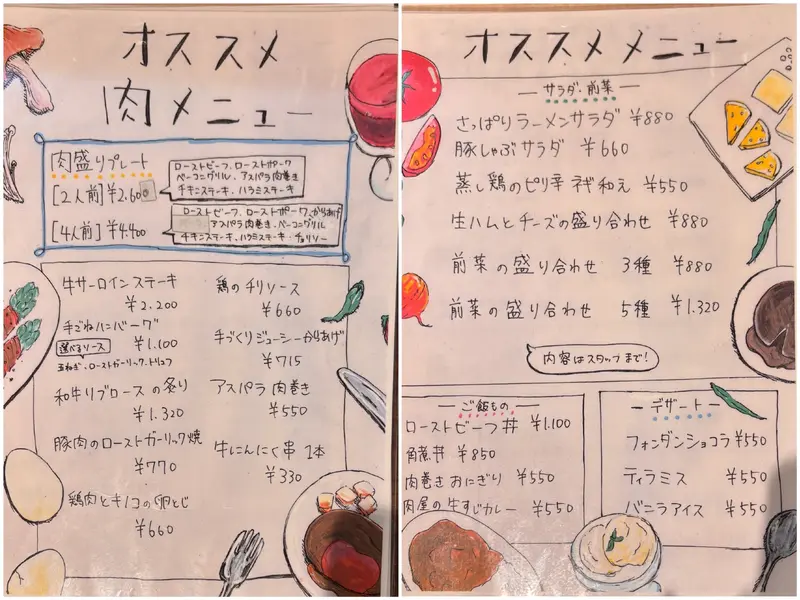 オススメ
肉メニュー
肉盛りプレート
[2人前]¥2.600
ローストビーフ、ローストポーク
ベーコングリル、アスパラ肉巻き
チキンステーキ、ハラミステーキ
[4人前]¥4.400
ローストビーフ、ローストポーク、からあげ
アスパラ肉巻き、ベーコングリル
チキンステーキ、ハラミステーキ・チョリソー
牛サーロインステーキ
¥2.200
手ごねハンバーグ
選べるソース
¥1.100
玉ねぎ、ローストガーリック、トリュフ
和牛リブロースの炙り
¥1.320
豚肉のローストガーリック焼
¥770
鶏肉とキノコの卵とじ
¥660
鶏のチリソース
¥660
手づくりジューシーからあげ
¥715
アスパラ肉巻き
¥550
牛にんにく串 1本
¥330
オススメメニュー
サラダ・前菜
さっぱりラーメンサラダ ¥880
豚しゃぶサラダ ¥660
蒸し鶏のピリ辛ネギ和え ¥550
生ハムとチーズの盛り合わせ ¥880
前菜の盛り合わせ 3種 ¥880
前菜の盛り合わせ 5種 ¥1.320
内容はスタッフまで!
ご飯もの
ローストビーフ丼 ¥1.100
角煮丼 ¥850
肉巻きおにぎり ¥550
肉屋の牛すじカレー ¥550
デザート
フォンダンショコラ ¥550
ティラミス ¥550
バニラアイス ¥550